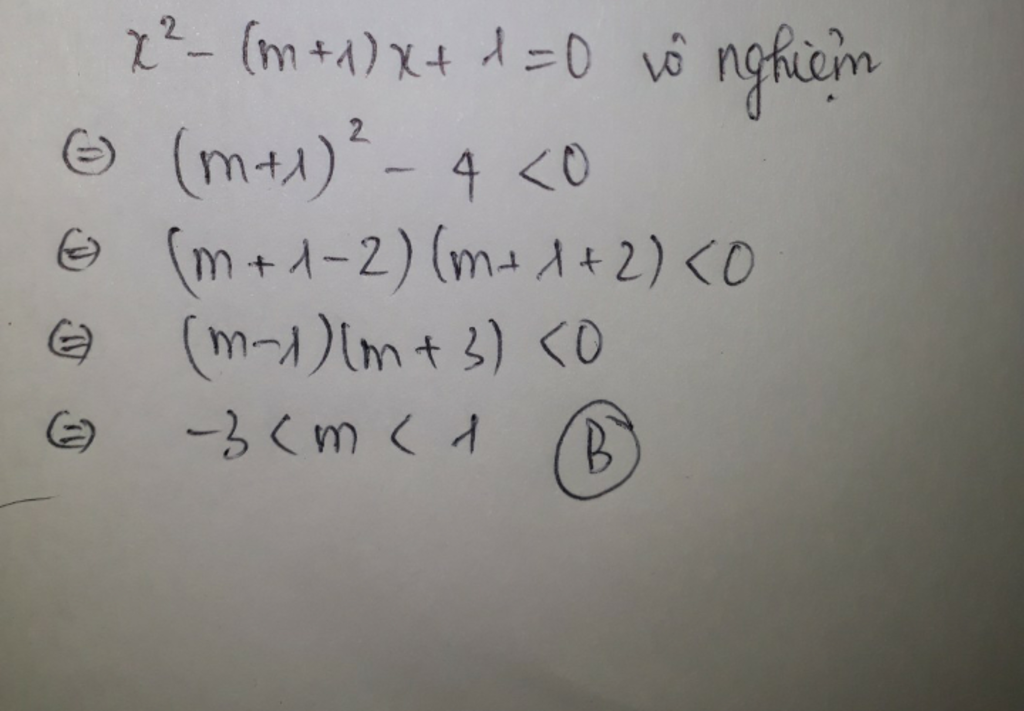 x² - (m+1)x + 1 = 0 vô nghiệm
⇔ (m+1)² - 4 < 0
⇔ (m+1-2)(m+1+2) < 0
⇔ (m-1)(m+3) < 0
⇔ -3 < m < 1 Ⓑ